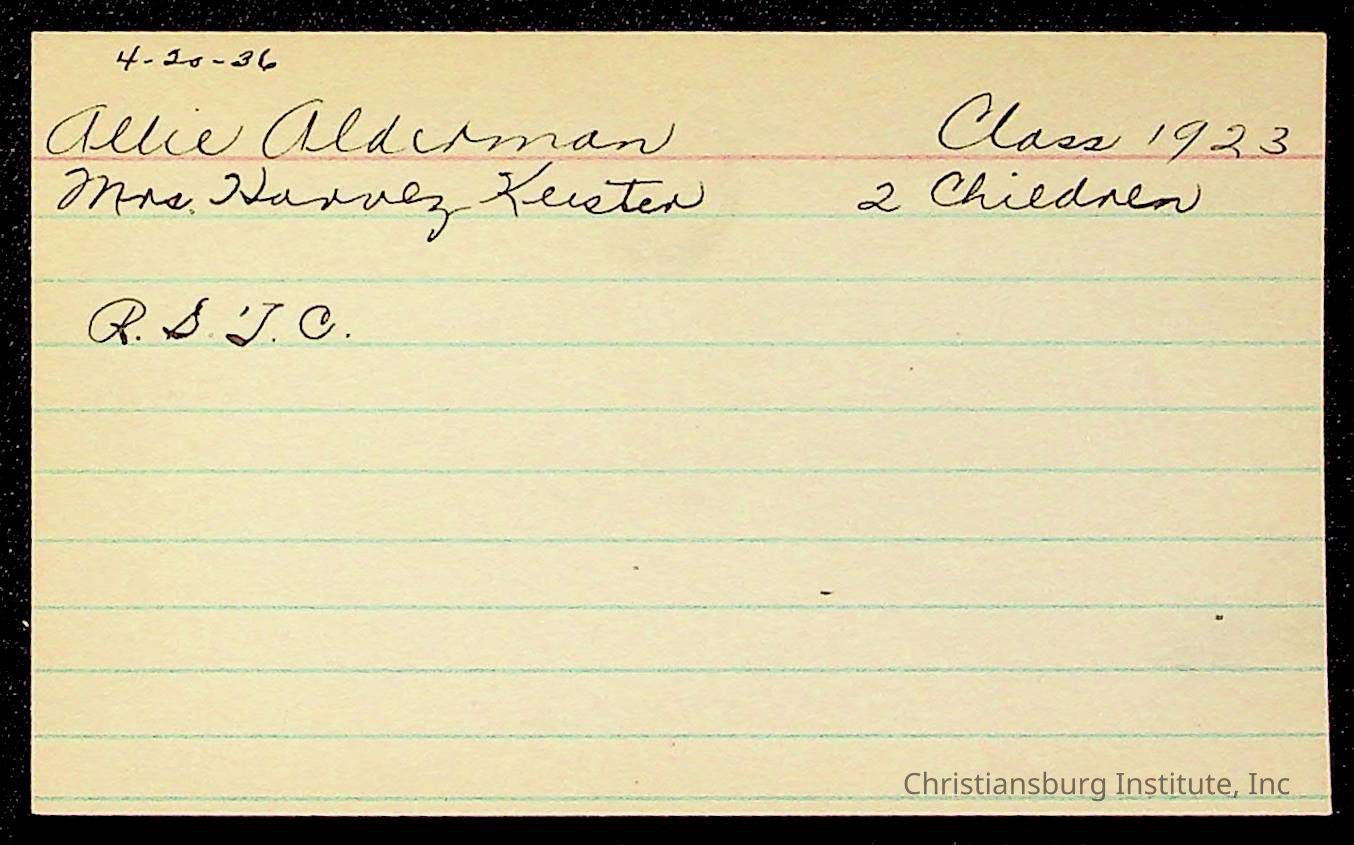 4-20-36
Allie Alderman Class 1923
Mrs. Harvey Keister 2 Children
R. S. T. C.
Christiansburg Institute, Inc